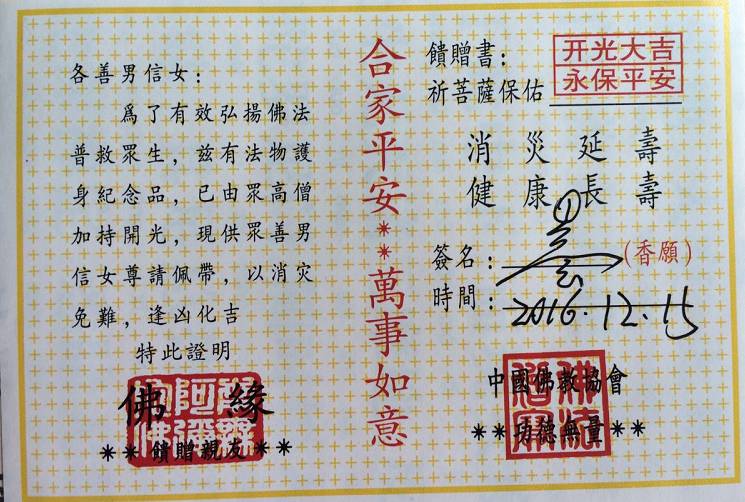 各善男信女：
爲了有效弘揚佛法
普救眾生，兹有法物護
身紀念品，已由眾高僧
加持開光，現供眾善男
信女尊請佩帶，以消灾
免難，逢凶化吉
特此證明
佛緣
**饋贈親友**
合家平安**萬事如意
饋贈書：
开光大吉
永保平安
祈菩薩保佑
消災延壽
健康長壽
簽名：
(香願)
時間：2016.12.15
中國佛教協會
**功德無量**